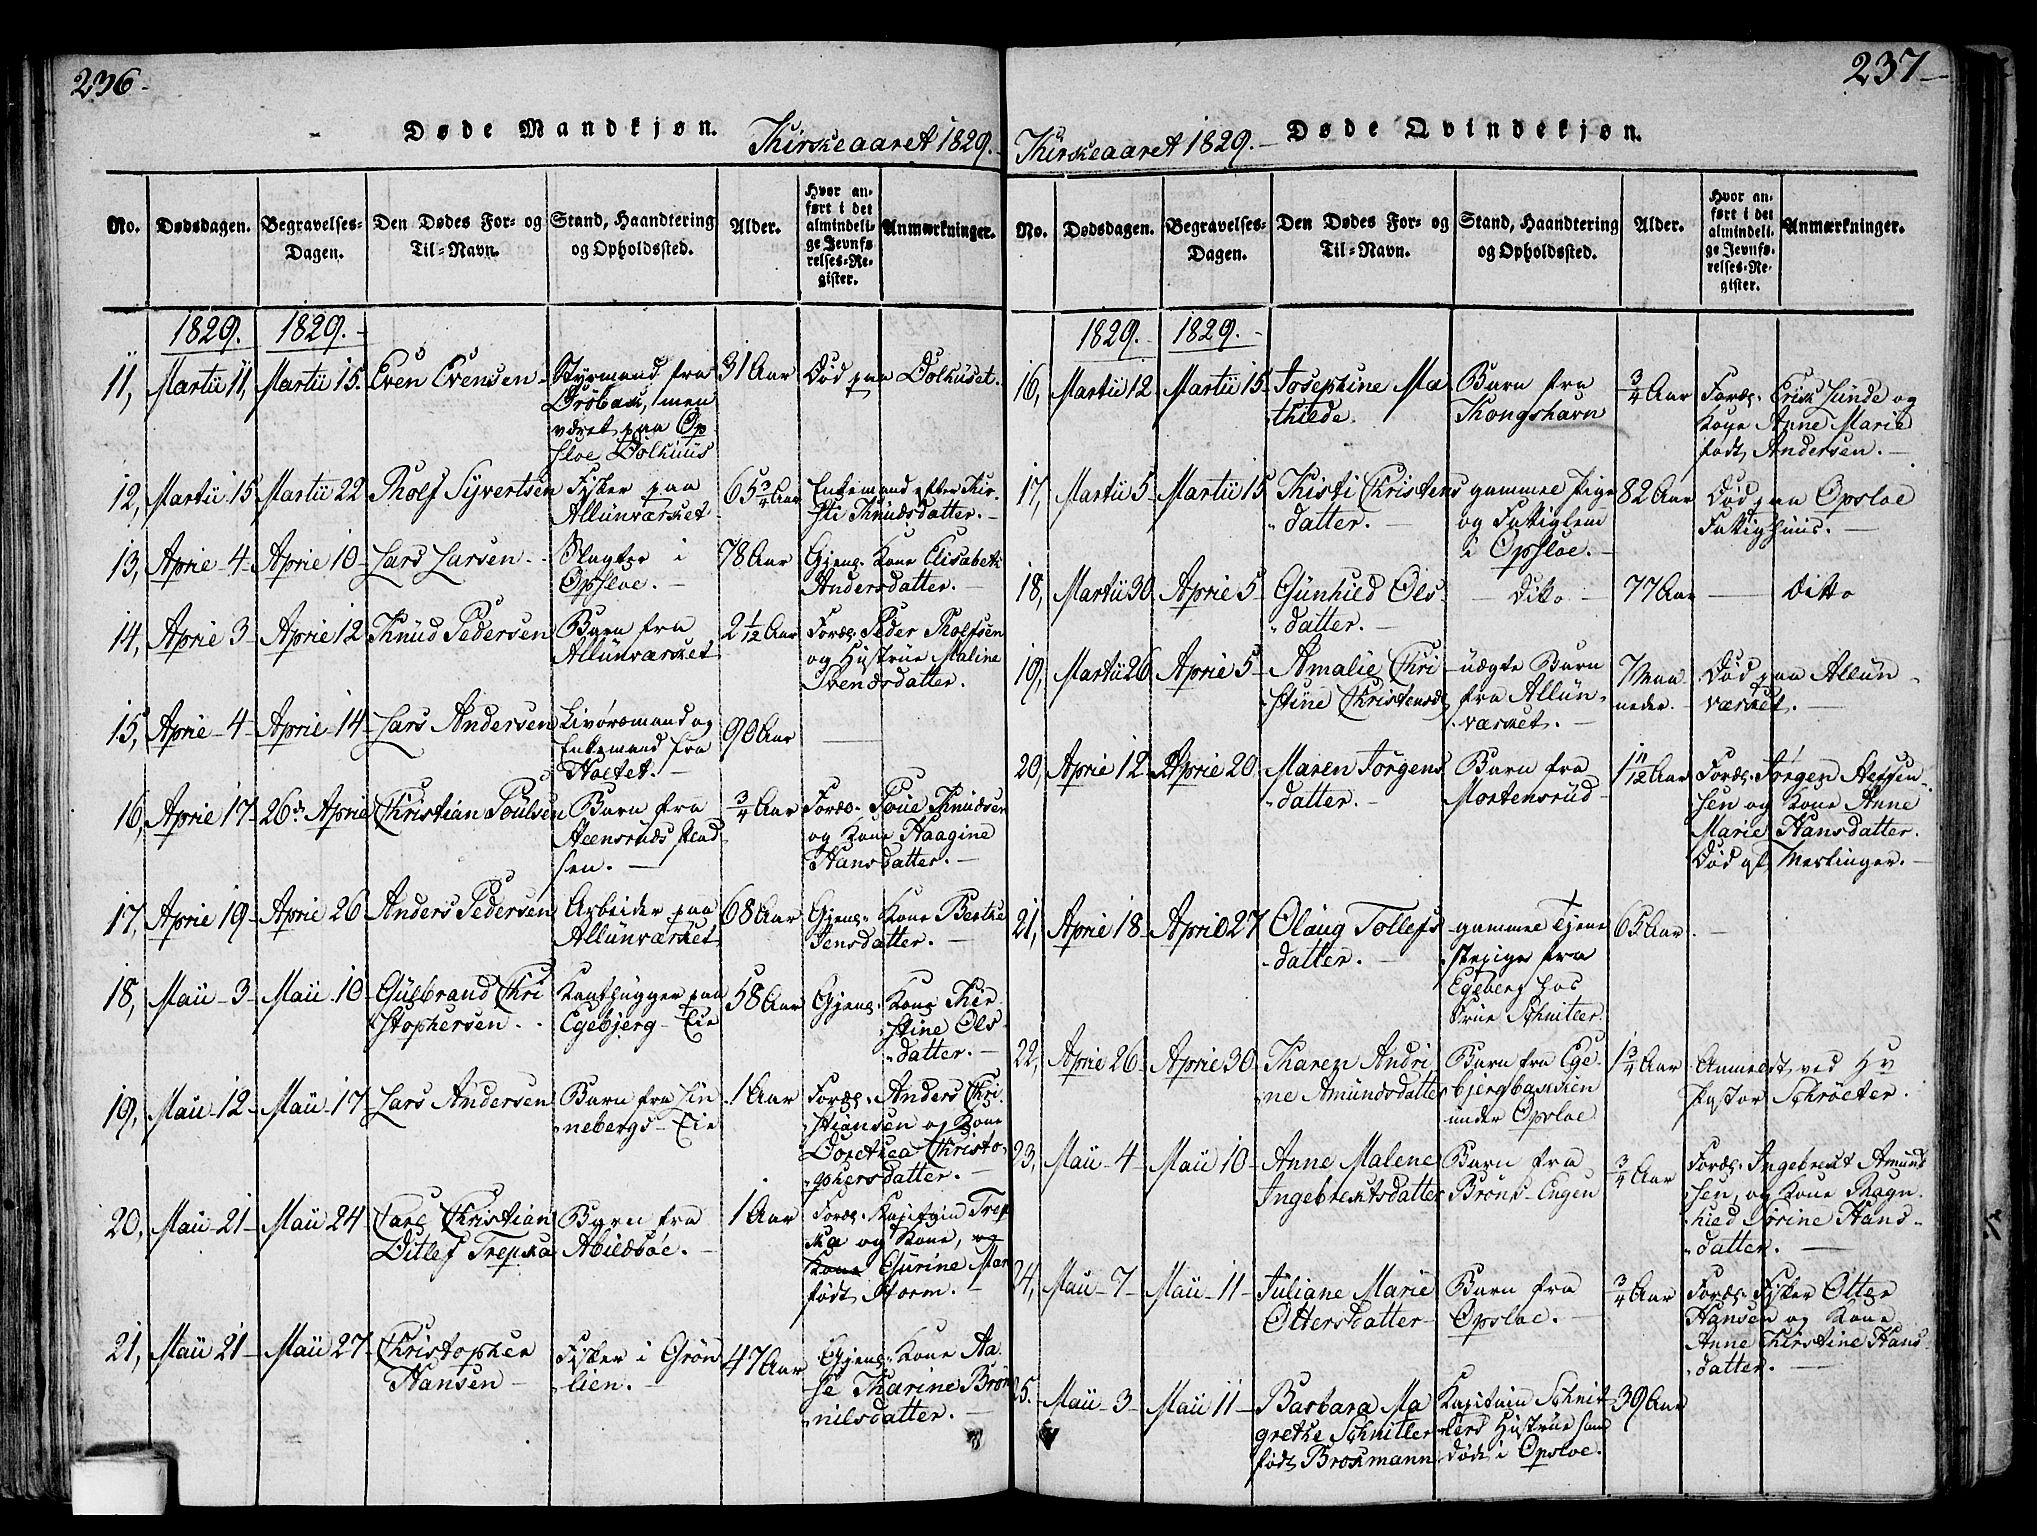 236.
Døde Mandkjøn.
Kirkeaaret 1829.
No.
Dødsdagen.
Begravelses-
Dagen.
Den Dødes For- og
Til-Navn.
Stand, Haandtering
og Opholdssted.
Alder.
Hvor an-
ført i det
almindeli-
ge Jevnfø-
relses-Re-
gister.
Anmærkninger.
1829. 1829.
11, Martii 11, Martii 15. Even Evensen
Styrmand fra
Drøbak, men
været paa Op
sloe Dolhuus
31 Aar
Død paa Dolhuset.
12, Martii 15 Martii 22 Rolf Syvertsen
Fisker paa
Allunværket
65 3/4 Aar
Enkemand efter Kir-
sti Knudsdatter.
13, April 4 April 10 Lars Larsen.
Slagter i
Opsloe.
78 Aar
Gjenl. Kone Elisabeth
Andersdatter.
14, April 3 April 12 Knud Pedersen
Barn fra
Allunværket
2 1/12 Aar
Foræl. Peder Rolfsen
og Hustrue Maline
Svendsdatter.
15, April 4 April 14 Lars Andersen
Livøresmand og
Enkemand fra
Holtet.
90 Aar
16, April 17 26de April Christian Poulsen
Barn fra
3/4 Aar
Foræl. Poul Knudsen
og Kone Haagine
Hansdatter.
17, April 19 April 26 Anders Pedersen
Arbeider paa
Allunværket
68 Aar
Gjenl. Kone Berthe
Jensdatter.
18, Maii 3 Maii 10 Gulbrand Chri
stophersen.
Kulhugger paa
Egebjerg Eie
58 Aar
Gjenl. Kone Kir-
stine Ols-
datter.
19, Maii 12 Maii 17 Lars Andersen
Barn fra Lin
nebergs Eie
1 Aar
Foræl. Anders Chri-
stiansen og Kone
Dorethea Christo-
phersdatter.
20, Maii 21 Maii 24 Carl Christian
Ditlef Trepka
Barn fra
Abildsøe.
1 Aar
Foræl. Kapitain Trep
ka og Kone, og
Kone Gurine Mar
født Storm.
21, Maii 21 Maii 27 Christopher
Hansen
Fisker i Grøn
lien.
47 Aar
Gjenl. Kone Aa-
se Karine Brøn
nilsdatter.
237
Kirkeaaret 1829.
Døde Qvindekjøn.
No.
Dødsdagen.
Begravelses-
Dagen.
Den Dødes For- og
Til-Navn.
Stand, Haandtering
og Opholdssted.
Alder.
Hvor an-
ført i det
almindeli-
ge Jevnfø-
relses-Re-
gister.
Anmærkninger.
1829. 1829.
16, Martii 12 Martii 15 Josephine Ma
thilde.
Barn fra
Kongshavn
3/4 Aar
Foræl. Erik Lunde og
Kone Anne Marie
født Andersen.
17, Martii 5 Martii 15 Kisti Christens
datter.
gammel Pige
og Fattiglem
i Opsloe.
82 Aar
Død paa Opsloe
Fattighuus.
18, Martii 30 April 5 Gunhild Ols
datter.
Dito
77 Aar
Dito
19, Martii 26 April 5 Amalie Chri
stine Christensd
uægte Barn
fra Allun-
værket.
7 Maa
neder.
Død paa Allun
værket.
20, April 12 April 20 Maren Jørgens
datter.
Barn fra
Mortensrud
1 11/12 Aar
Foræl. Jørgen
sen og Kone Anne
Marie Hansdatter.
Død af Meslinger.
21, April 18 April 27 Olaug Tollefs
datter.
gammel Tjene
stepige fra
Egeberg hos
Frue Schnitler
65 Aar
22, April 26 April 30 Karen Andri
ne Amundsdatter
Barn fra Ege-
bjergbakken
under Opsloe
1 3/4 Aar
Anmeldt ved Hr
Pastor Schrøeter.
23, Maii 4 Maii 10 Anne Malene
Ingebrektsdatter
Barn fra
Brønk-Engen
3/4 Aar
Foræl. Ingebrekt Amund
sen, og Kone Ragn-
hild Sørine Hans-
datter.
24, Maii 7 Maii 11 Juliane Marie
Ottersdatter
Barn fra
Opsloe.
3/4 Aar
Foræl. Fisker Otter
Hansen og Kone
Anne Kirstine Hans-
datter.
25. Maii 3 Maii 11 Barbara Ma
grethe Schnitler
født Brokmann
Kapitain Schnit
lers Hustrue som
døde i Opsloe.
39 Aar